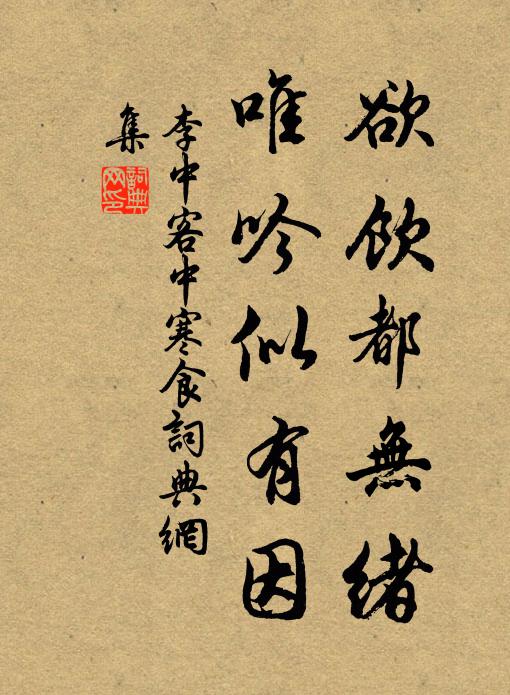 欲飲都無緒
唯吟似有因
李中客中寒食詞典網
集
詞典
网印